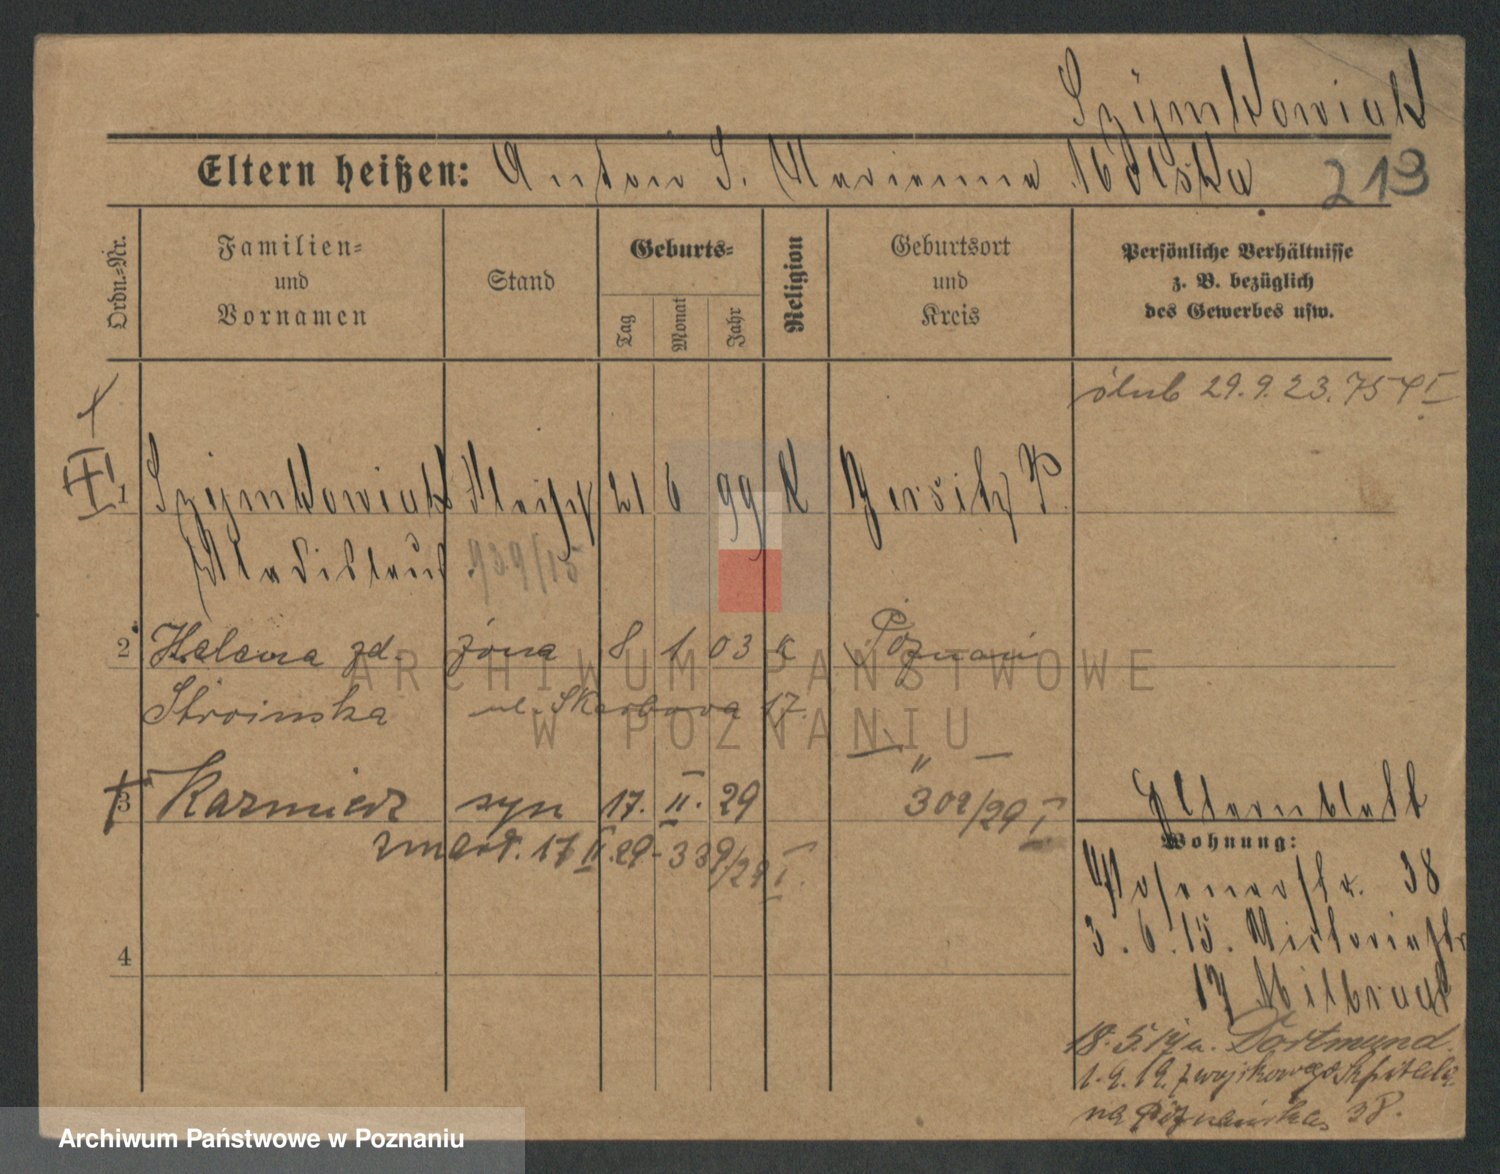 Szymkowiak
Eltern heißen: Anton S. Marianna Wolska 213
Ordn.-Nr.
Familien-
und
Vornamen
Stand
Geburts-
Tag
Monat
Jahr
Religion
Geburtsort
und
Kreis
Persönliche Verhältnisse
z. B. bezüglich
des Gewerbes usw.
ślub 29.9.23.
1 Szymkowiak 21 6 99 K Jersitz P.
Wladislaus
2 Helena zd. żona 8 1 03 K Poznań
Stroinska ul. Skarbowa 17.
— „ —
3 Kazmierz syn 17. II. 29 302/29 I
zmarł. 17 II. 29 - 339/29 I.
Elternblatt
Wohnung:
Posenerstr. 38
3.6.15. Victoriastr
17 Milbradt
18.5.17 a. Dortmund.
1.9.19. z wojskowego Szpitala
na Poznańska 38.
4
ARCHIWUM PAŃSTWOWE
W POZNANIU
Archiwum Państwowe w Poznaniu